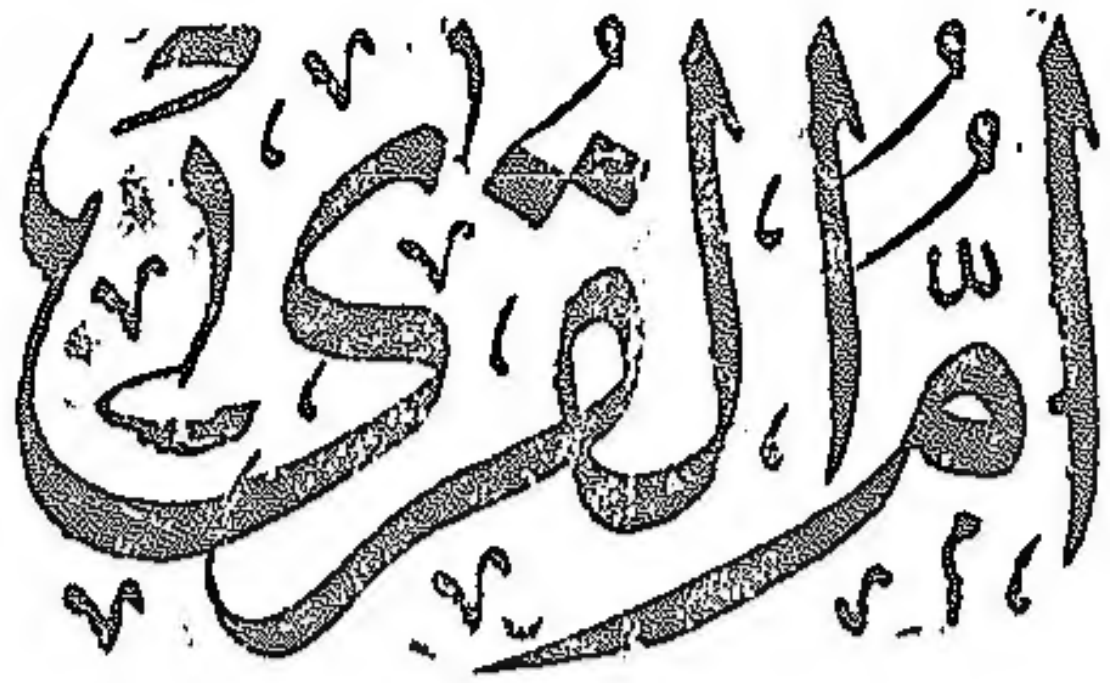 أُمُّ الْقُرَى